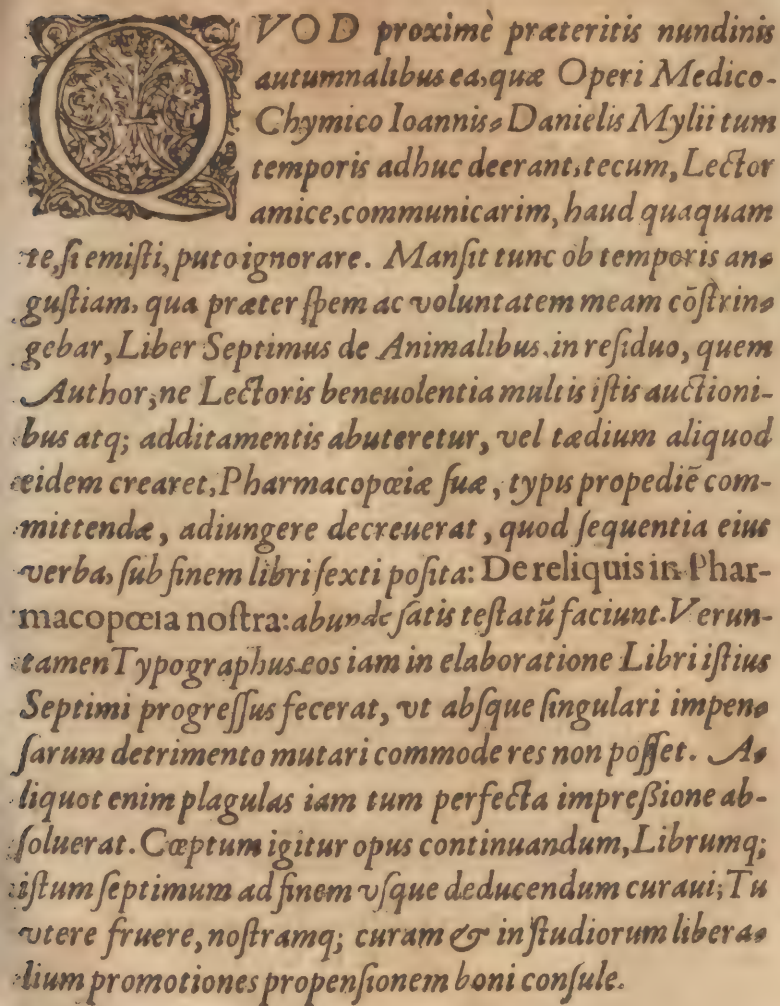 QVOD proximè præteritis nundinis
autumnalibus ea, quæ Operi Medico-
Chymico Ioannis Danielis Mylii tum
temporis adhuc deerant, tecum, Lector
amice, communicarim, haud quaquam
te, ſi emiſti, puto ignorare. Manſit tunc ob temporis an-
guſtiam, qua præter ſpem ac voluntatem meam cōſtrin-
gebar, Liber Septimus de Animalibus in reſiduo, quem
Author, ne Lectoris beneuolentia multis iſtis auctioni-
bus atq; additamentis abuteretur, vel tædium aliquod
eidem crearet, Pharmacopœiæ ſuæ, typis propediē com-
mittendæ, adiungere decreuerat, quod ſequentia eius
verba, ſub finem libri ſexti poſita: De reliquis in Phar-
macopœia noſtra: abunde ſatis teſtatū faciunt. Verun-
tamen Typographus eos iam in elaboratione Libri iſtius
Septimi progreſſus fecerat, vt abſque ſingulari impen-
ſarum detrimento mutari commode res non poſſet. A-
liquot enim plagulas iam tum perfecta impreßione ab-
ſoluerat. Cœptum igitur opus continuandum, Librumq;
iſtum ſeptimum ad finem vſque deducendum curaui; Tu
vtere fruere, noſtramq; curam & in ſtudiorum libera-
lium promotiones propenſionem boni conſule.